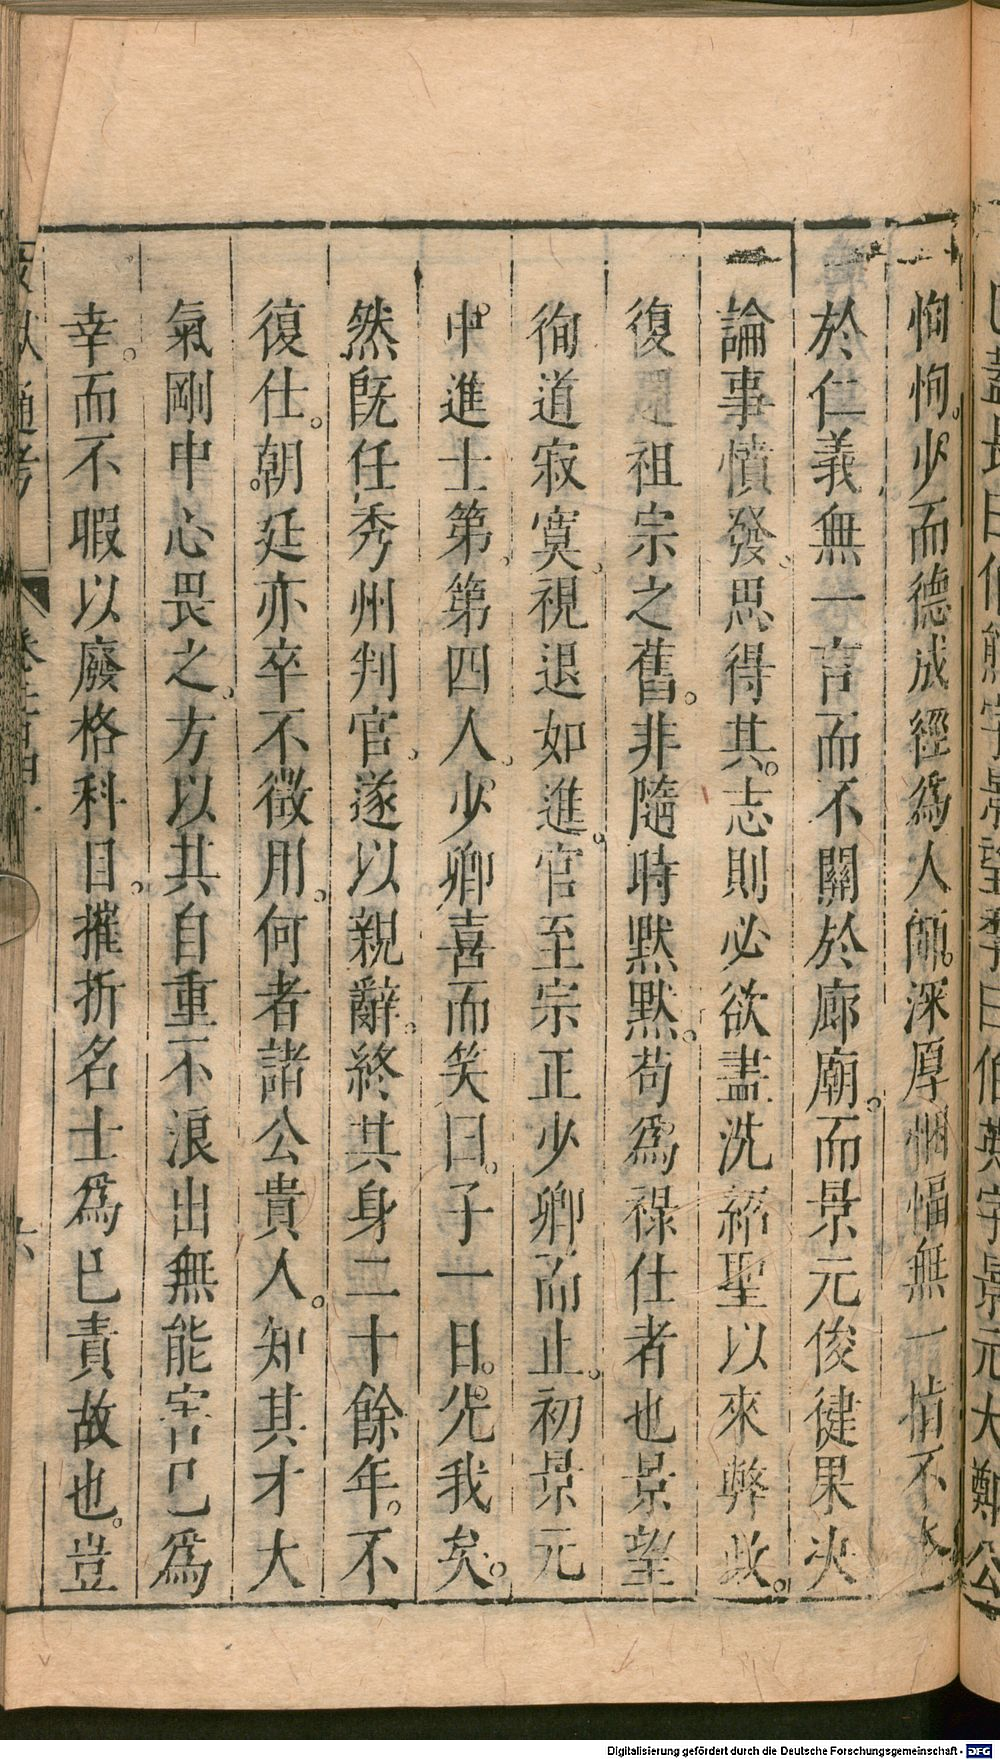 恂恂。少而德成經爲人師。深厚悃愊無一惰不本
於仁義無一言而不關於廊廟。而景元俊健果決
論事憤發。思得其志則必欲盡洗紹聖以來弊政。
復還祖宗之舊。非隨時默默。苟爲祿仕者也景望
徇道寂寞。視退如進。官至宗正少卿而止。初景元
中進士第。第四人。少卿喜而笑曰。子一日。先我矣。
然旣任秀州判官。遂以親辭。終其身二十餘年。不
復仕。朝廷亦卒不徵用。何者諸公貴人。知其才大
氣剛中心畏之。方以其自重不浪出無能害己爲
幸。而不暇以廢格科目。摧折名士爲已責故也。豈
通考
六
日伯熊字景望季曰伯英字景元大鄭公
Digitalisierung gefördert durch die Deutsche Forschungsgemeinschaft - DFG